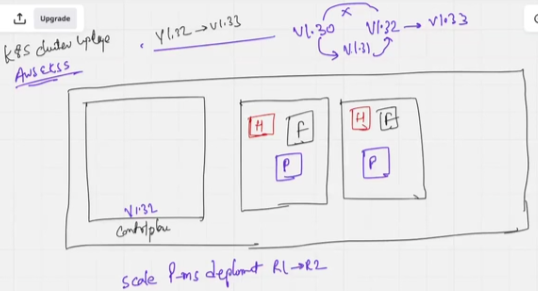 Upgrade
K8S cluster Upgrade
AWS EKS
V1.32 → V1.33
V1.30 x V1.32 → V1.33
V1.31
H F
P
H F
P
V1.32
Controlplane
scale P-ms deployment R1→R2